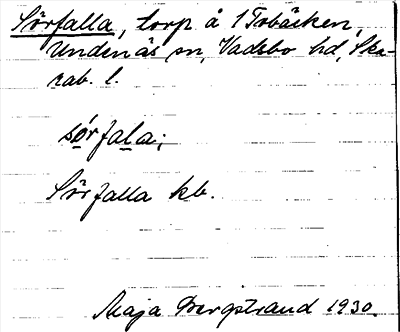 Sörfalla, torp å 1 Tobäcken,
Undenäs sn, Vadsbo hd, Ska-
rab. l.
sørfala;
Sörfalla kb.
Maja Bergstrand 1930.